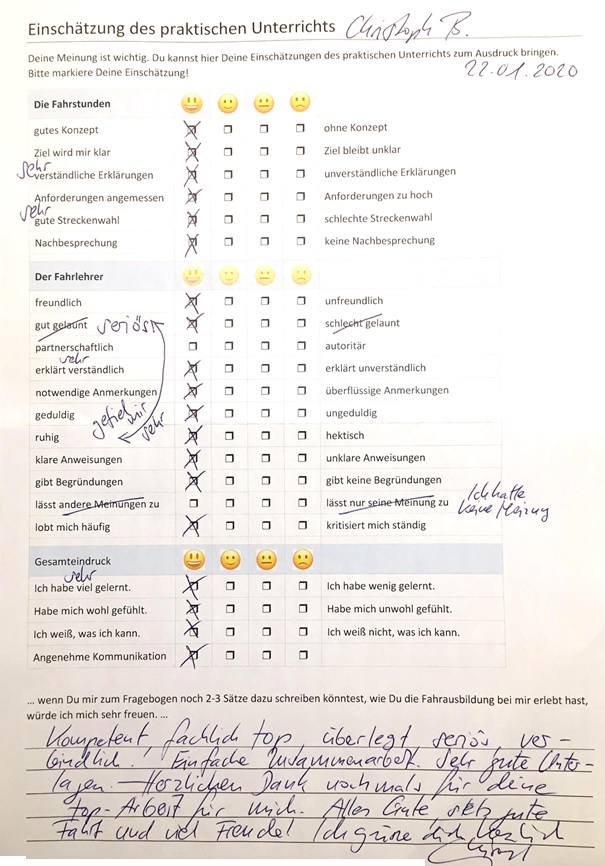 Einschätzung des praktischen Unterrichts Christoph B.
Deine Meinung ist wichtig. Du kannst hier Deine Einschätzungen des praktischen Unterrichts zum Ausdruck bringen.
Bitte markiere Deine Einschätzung!
22.01.2020
Die Fahrstunden
gutes Konzept ohne Konzept
Ziel wird mir klar Ziel bleibt unklar
sehr
verständliche Erklärungen unverständliche Erklärungen
Anforderungen angemessen Anforderungen zu hoch
sehr
gute Streckenwahl schlechte Streckenwahl
Nachbesprechung keine Nachbesprechung
Der Fahrlehrer
freundlich unfreundlich
gut gelaunt seriöst schlecht gelaunt
partnerschaftlich autoritär
sehr
erklärt verständlich erklärt unverständlich
notwendige Anmerkungen überflüssige Anmerkungen
geduldig gefiel mir sehr ungeduldig
ruhig hektisch
klare Anweisungen unklare Anweisungen
gibt Begründungen gibt keine Begründungen
lässt andere Meinungen zu lässt nur seine Meinung zu Ich hatte
keine Meinung
lobt mich häufig kritisiert mich ständig
Gesamteindruck
sehr
Ich habe viel gelernt. Ich habe wenig gelernt.
Habe mich wohl gefühlt. Habe mich unwohl gefühlt.
Ich weiß, was ich kann. Ich weiß nicht, was ich kann.
Angenehme Kommunikation
... wenn Du mir zum Fragebogen noch 2-3 Sätze dazu schreiben könntest, wie Du die Fahrausbildung bei mir erlebt hast,
würde ich mich sehr freuen. ...
Kompetent, fachlich top überlegt seriös ver-
bindlich! Einfache Zusammenarbeit. Sehr gute Unter-
lagen. – Herzlichen Dank nochmals für deine
top-Arbeit für mich. Alles Gute, stets gute
Fahrt und viel Freude! Ich grüße dich herzlich